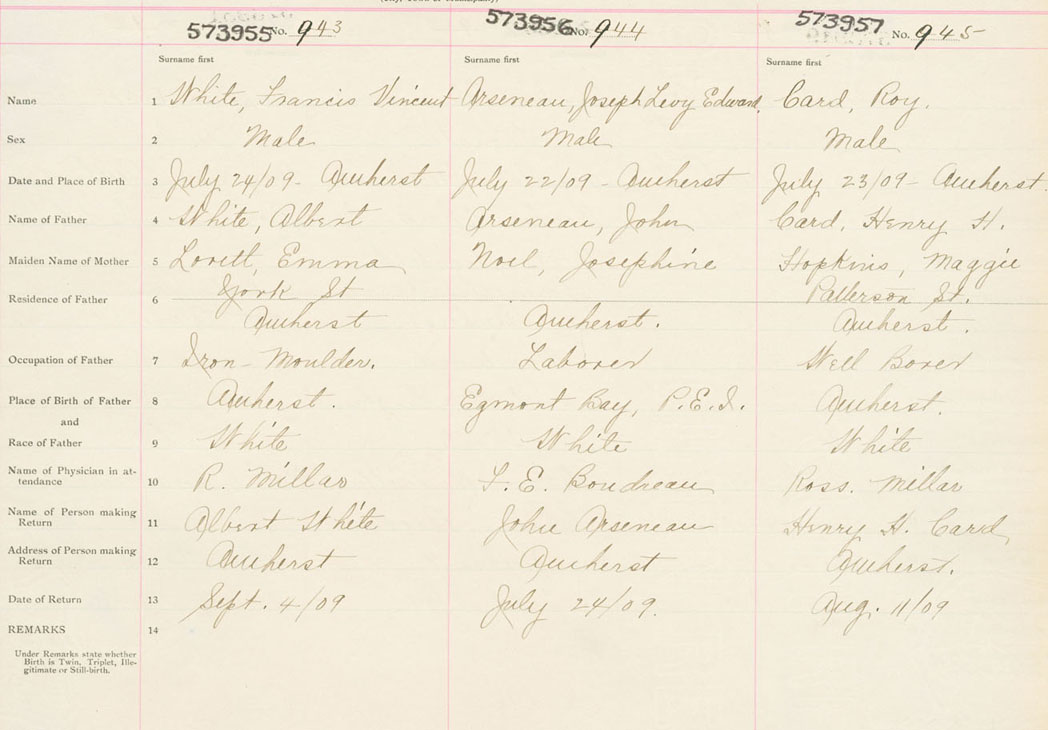 573955 No. 943 573956 No. 944 573957 No. 945
Surname first Surname first Surname first
Name 1 White, Francis Vincent Arseneau, Joseph Levy Edward. Card, Roy.
Sex 2 Male Male Male
Date and Place of Birth 3 July 24/09 - Amherst July 22/09 - Amherst July 23/09 - Amherst.
Name of Father 4 White, Albert Arseneau, John Card, Henry H.
Maiden Name of Mother 5 Lovitt, Emma Noel, Josephine Hopkins, Maggie
Residence of Father 6 York St Patterson St.
Amherst Amherst. Amherst.
Occupation of Father 7 Iron-Moulder. Laborer Well Borer
Place of Birth of Father 8 Amherst. Egmont Bay, P.E.I. Amherst.
and
Race of Father 9 White White White
Name of Physician in at-
tendance 10 R. Millar F. E. Boudreau Ross. Millar
Name of Person making
Return 11 Albert White John Arseneau Henry H. Card
Address of Person making
Return 12 Amherst Amherst Amherst.
Date of Return 13 Sept. 4/09 July 24/09. Aug. 11/09
REMARKS 14
Under Remarks state whether
Birth is Twin, Triplet, Ille-
gitimate or Still-birth.